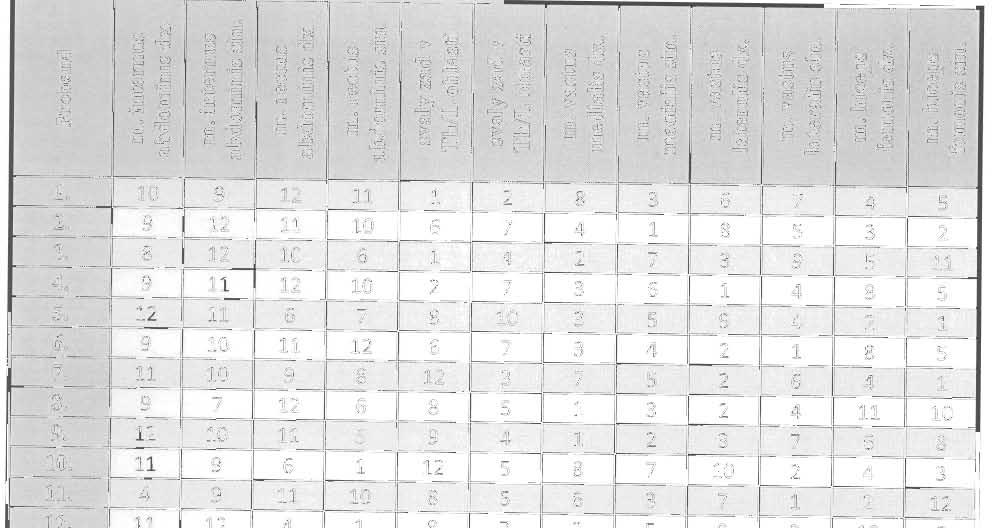 Proband
m. internus
abdominis dx
m. internus
abdominis sin.
m. rectus
abdominis dx
m. rectus
abdominis sin
svaly zad v
Th/L oblasti
svaly zad v
Th/L oblasti
m. vastus
medialis dx.
m. vastus
medialis sin.
m. vastus
lateralis dx.
m. vastus
lateralis sin.
m. biceps
femoris dx.
m. biceps
femoris sin.
1. 10 9 12 11 1 2 8 3 6 7 4 5
2. 9 12 11 10 6 7 4 1 8 5 3 2
3. 8 12 10 6 1 4 2 7 3 9 5 11
4. 9 11 12 10 2 7 3 6 1 4 8 5
5. 12 11 6 7 9 10 3 5 8 4 2 1
6. 9 10 11 12 6 7 3 4 2 1 8 5
7. 11 10 9 8 12 3 7 5 2 6 4 1
8. 9 7 12 6 8 5 1 3 2 4 11 10
9. 12 10 11 5 9 4 1 2 3 7 6 8
10. 11 9 6 1 12 5 8 7 10 2 4 3
11. 4 9 11 10 8 5 6 3 7 1 2 12
12. 11 12 4 1